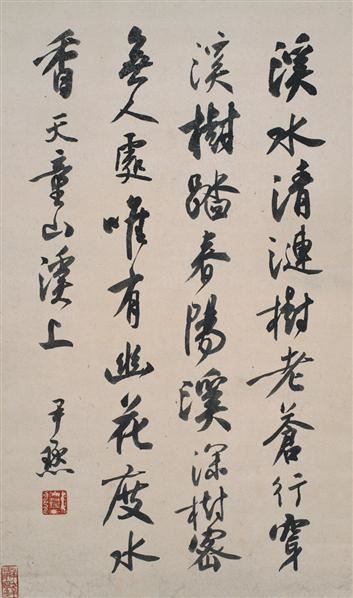 溪水清漣樹老蒼行穿
溪樹踏春陽溪深樹密
無人處唯有幽花度水
香天童山溪上
尹默